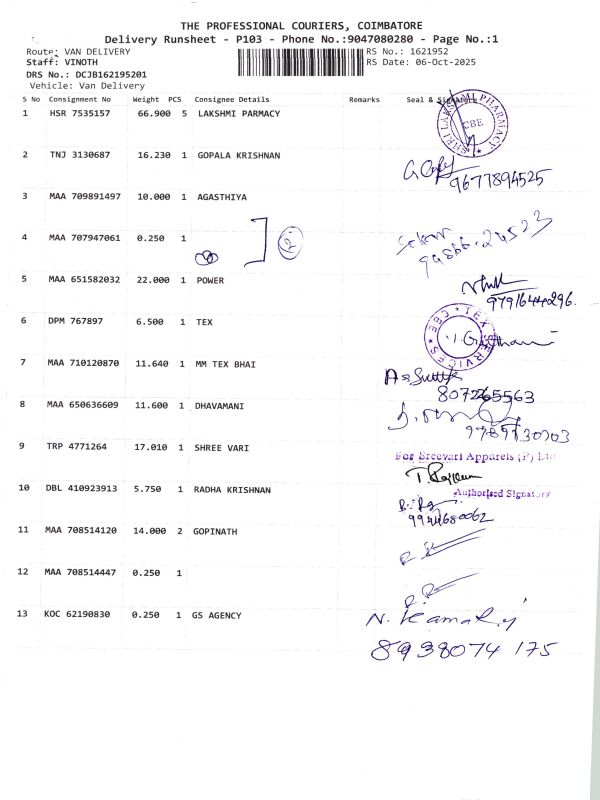 THE PROFESSIONAL COURIERS, COIMBATORE
Delivery Runsheet - P103 - Phone No.:9047080280 - Page No.:1
Route: VAN DELIVERY RS No.: 1621952
Staff: VINOTH RS Date: 06-Oct-2025
DRS No.: DCJB162195201
Vehicle: Van Delivery
S No Consignment No Weight PCS Consignee Details Remarks Seal & Signature
1 HSR 7535157 66.900 5 LAKSHMI PARMACY
SHRI LAKSHMI PHARMACY
CBE
2 TNJ 3130687 16.230 1 GOPALA KRISHNAN
9677894525
3 MAA 709891497 10.000 1 AGASTHIYA
4 MAA 707947061 0.250 1
2
5 MAA 651582032 22.000 1 POWER
9791644296.
6 DPM 767897 6.500 1 TEX
TEX SERVICES CBE
7 MAA 710120870 11.640 1 MM TEX BHAI
8072265563
8 MAA 650636609 11.600 1 DHAVAMANI
9 TRP 4771264 17.010 1 SHREE VARI
For Sreevari Apparels (P) Ltd
Authorised Signatory
10 DBL 410923913 5.750 1 RADHA KRISHNAN
9944680062
11 MAA 708514120 14.000 2 GOPINATH
12 MAA 708514447 0.250 1
13 KOC 62190830 0.250 1 GS AGENCY
8938074 175